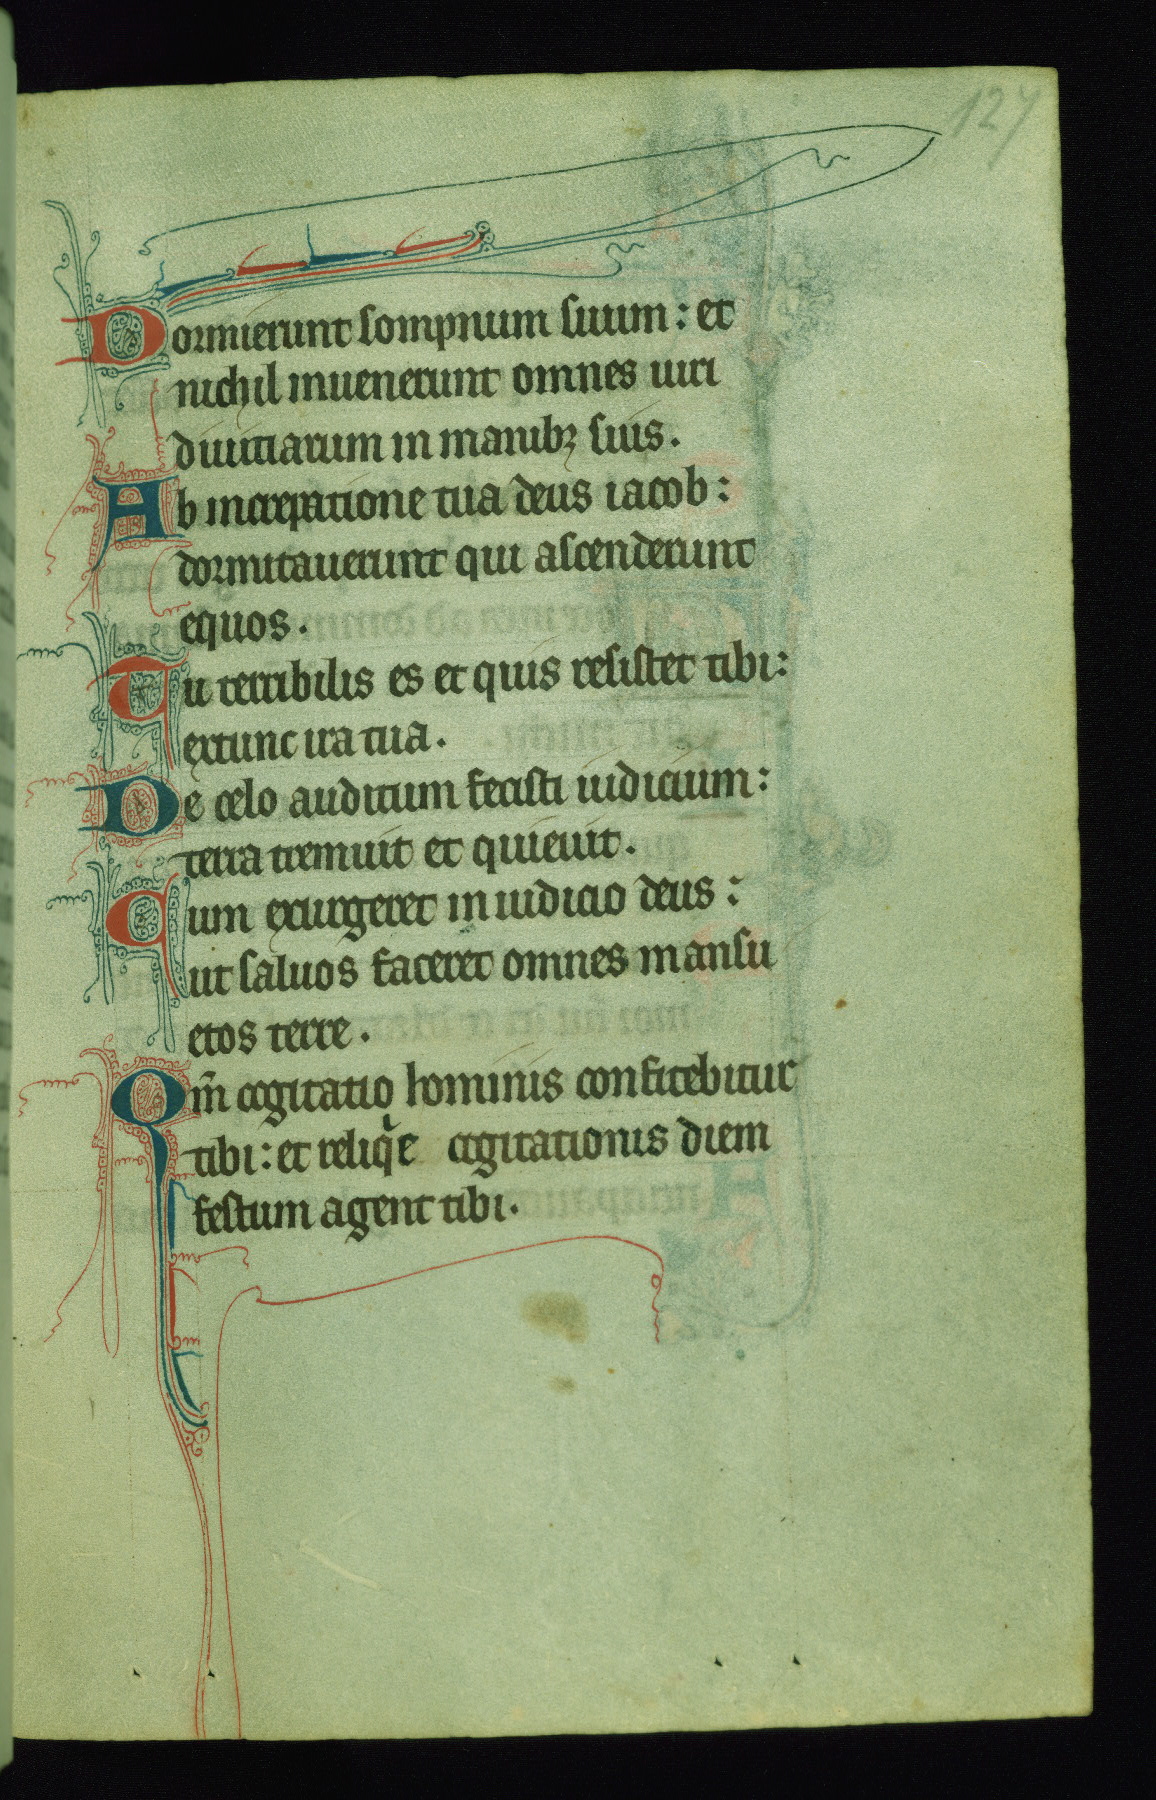 127
Dormierunt sompnum suum : et
nichil inuenerunt omnes uiri
diuitiarum in manibꝫ suis .
Ab increpatione tua deus iacob :
dormitauerunt qui ascenderunt
equos .
Tu terribilis es et quis resistet tibi :
extunc ira tua .
De celo auditum fecisti iudicium :
terra tremuit et quieuit .
Cum exurgeret in iudicio deus :
ut saluos faceret omnes mansu
etos terre .
Qm̄ cogitatio hominis confitebitur
tibi : et reliqͥe cogitationis diem
festum agent tibi .